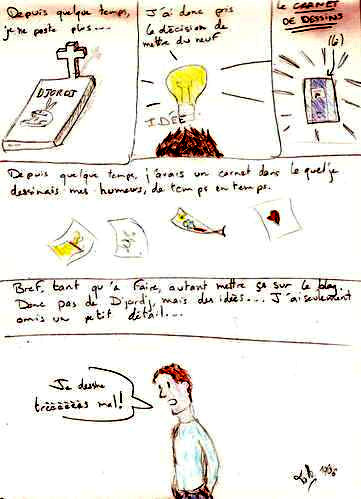 Depuis quelque temps,
je ne poste plus...
DJORDJ
J'ai donc pris
la décision de
mettre du neuf
IDÉE
LE CARNET
DE DESSINS
(6)
Depuis quelque temps, j'avais un carnet dans lequel je
dessinais mes humeurs, de temps en temps.
Bref, tant qu'à faire, autant mettre ça sur le blog.
Donc pas de Djordj, mais des idées... J'ai seulement
omis un petit détail...
Je dessine
trèèèèèès mal!